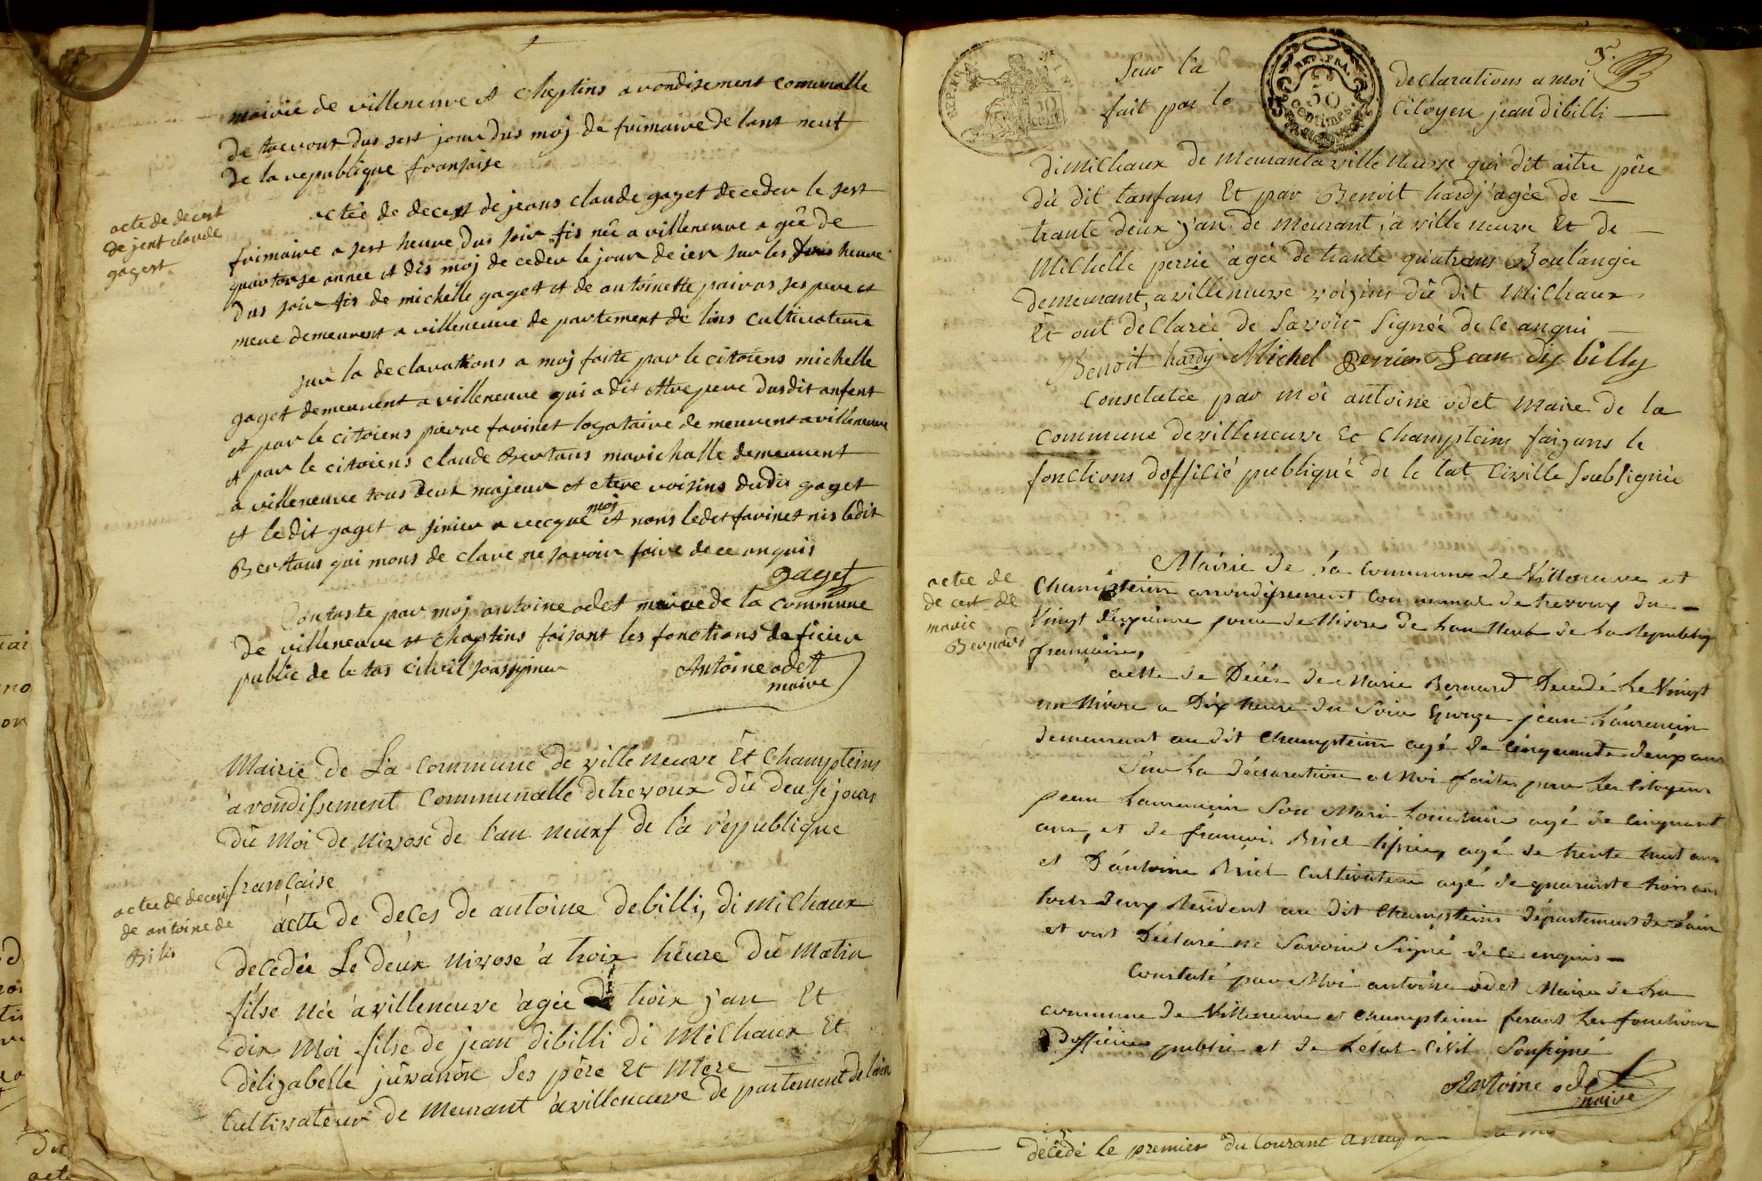 mairie de villeneuve et Cheptins arondisement comunalle
de trevout dus sest jour dus moj de frimaire de lant neuf
de la republique franseise
acte de decest
de jent claude
gagest
actée de decest de jeans claude gaget deceder le sest
frimaire a sest heure dus soir fis née a villeneuve agée de
quartorse année et dis moj deceder le jour de ier sur les heure
dus soir fis de michelle gaget et de antoinette pairas ses pere et
mere demeurent a villeneuve de partement de lins cultivateur
sur la declarations a moj faite par le citoiens michelle
gaget demeurent a villeneuve qui a dit ettre pere dusdit anfent
et par le citoiens pierre favinet logataire demeurent a villeneuve
et par le citoiens claude Bertaus marichalle demeurent
a villeneuve tous deux majeur et etere voisins dudit gaget
et le dit gaget a sinier avecque moj et nons ledet favinet nis ledit
Bertaus qui mons declare ne savoir faire de ce anquis
gaget
Contaste par moj antoine odet maire de la commune
de villeneuve et chaptins faisant les fonctions deficier
public de le tas cihvil sousigner
Antoine odet
maire
Mairie de La Commune de ville neuve Et Champteins
arondissement Communalle de trevoux du deusse jours
du Moi de nivose de l'an neuf de la republique
francaise
actee de decest
de antoine de
Bili
acte de deces de antoine debilli, di Milhaux
decedée Le deux nivose a troix heure du Matin
filse née a villeneuve agée de troix j'an Et
dix Moi filse de jean dibilli di Milhaux Et
délizabelle juvanon Ses père Et Mere
Cultivateur de Meurant a villeneuve de partement de lain
5.
Sur la declarations a moi
fait par le Citoyen jean dibilli
REP. FRA.
50
Centimes
di Milhaux de Meurant a ville Neuve qui dit aitre père
du dit l'anfans Et par Benoit hardj agée de
trante deux j'an de Meurant, a ville neuve Et de
Michelle perrié agée de trante quatrans Boulangé
demeurant, a villeneuve voizins du dit Milhaux
Et ont déclarée de Savoir Signée de ce anqui
Benoit hardy Michel Perrier Jean dis billy
Constatée par Moi antoine odet Maire de la
commune de villeneuve Et Champteins faizans le
fonctions dofficié publique de le tat Civille Soubsignée
actee de
de cest de
marie
Bernard
Mairie de la commune de Villeneuve et
Champtein arrondissement communal de trevoux du
Vingt jour de Nivose de l'an Neuf de la Republiq
francaise,
acte de Décés de Marie Bernard Decedé Le Vingt
un Nivose a Dix heure du Soir Epouze jean Laurencin
demeurant au dit Champtein agé de Cinquante deux ans
Sur La Déclaration a Moi faite par Les Citoyens
jean Laurencin Son Mari agé de Cinquant
ans, et de francois Briel agé de trente huit ans
et D'antoine Briel Cultivateur agé de quarante trois ans
tous deux Resident au dit Champteins département de L'ain
et ont Déclaré ne Savoir Signé de ce enquis
Constaté par Moi antoine odet Maire de La
commune de Villeneuve et Champtein fesant Les fonctions
D'officier public et de Letat Civil Soussigné
Antoine odet
maire
décédé le premier du Courant